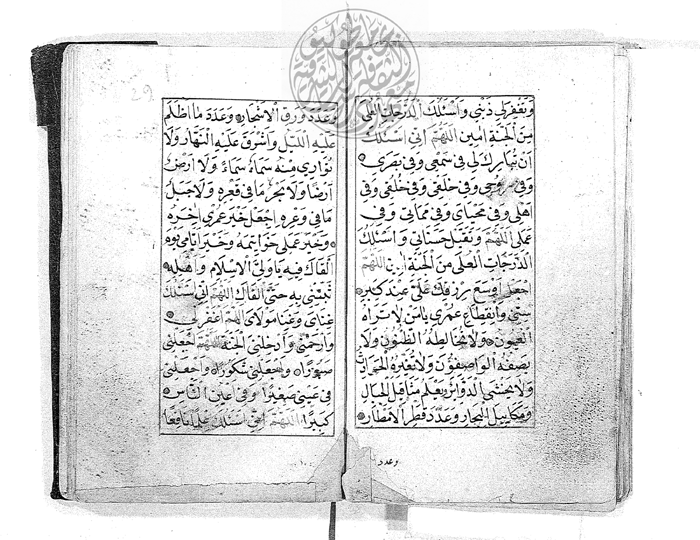 وتغفر لي ذنبي واسئلك الدرجات العلى
من الجنة امين اللهم اني اسئلك
ان تبارك لي في سمعي وفي بصري
وفي روحي وفي خلقي وفي خلقي وفي
اهلي وفي محياي وفي مماتي وفي
عملي اللهم وتقبل حسناتي واسئلك
الدرجات العلى من الجنة امين اللهم
اجعل اوسع رزقك علي عند كبر
سني وانقطاع عمري يا من لا تراه
العيون ولا تخالطه الظنون ولا
يصفه الواصفون ولا تغيره الحوادث
ولا يخشى الدوائر يعلم مثاقيل الجبال
ومكاييل البحار وعدد قطر الامطار
وعدد
وعدد ورق الاشجار وعدد ما اظلم
عليه الليل واشرق عليه النهار ولا
تواري منه سماء سماء ولا ارض
ارضا ولا بحر ما في قعره ولا جبل
ما في وعره اجعل خير عمري اخره
وخير عملي خواتمه وخير ايامي يوم
القاك فيه يا ولي الاسلام واهله
ثبتني به حتى القاك اللهم اني اسئلك
غناي وغنا مولاي اللهم اغفر لي
وارحمني وادخلني الجنة اللهم اجعلني
صبورا واجعلني شكورا واجعلني
في عيني صغيرا وفي اعين الناس
كبيرا اللهم اني اسئلك علما نافعا